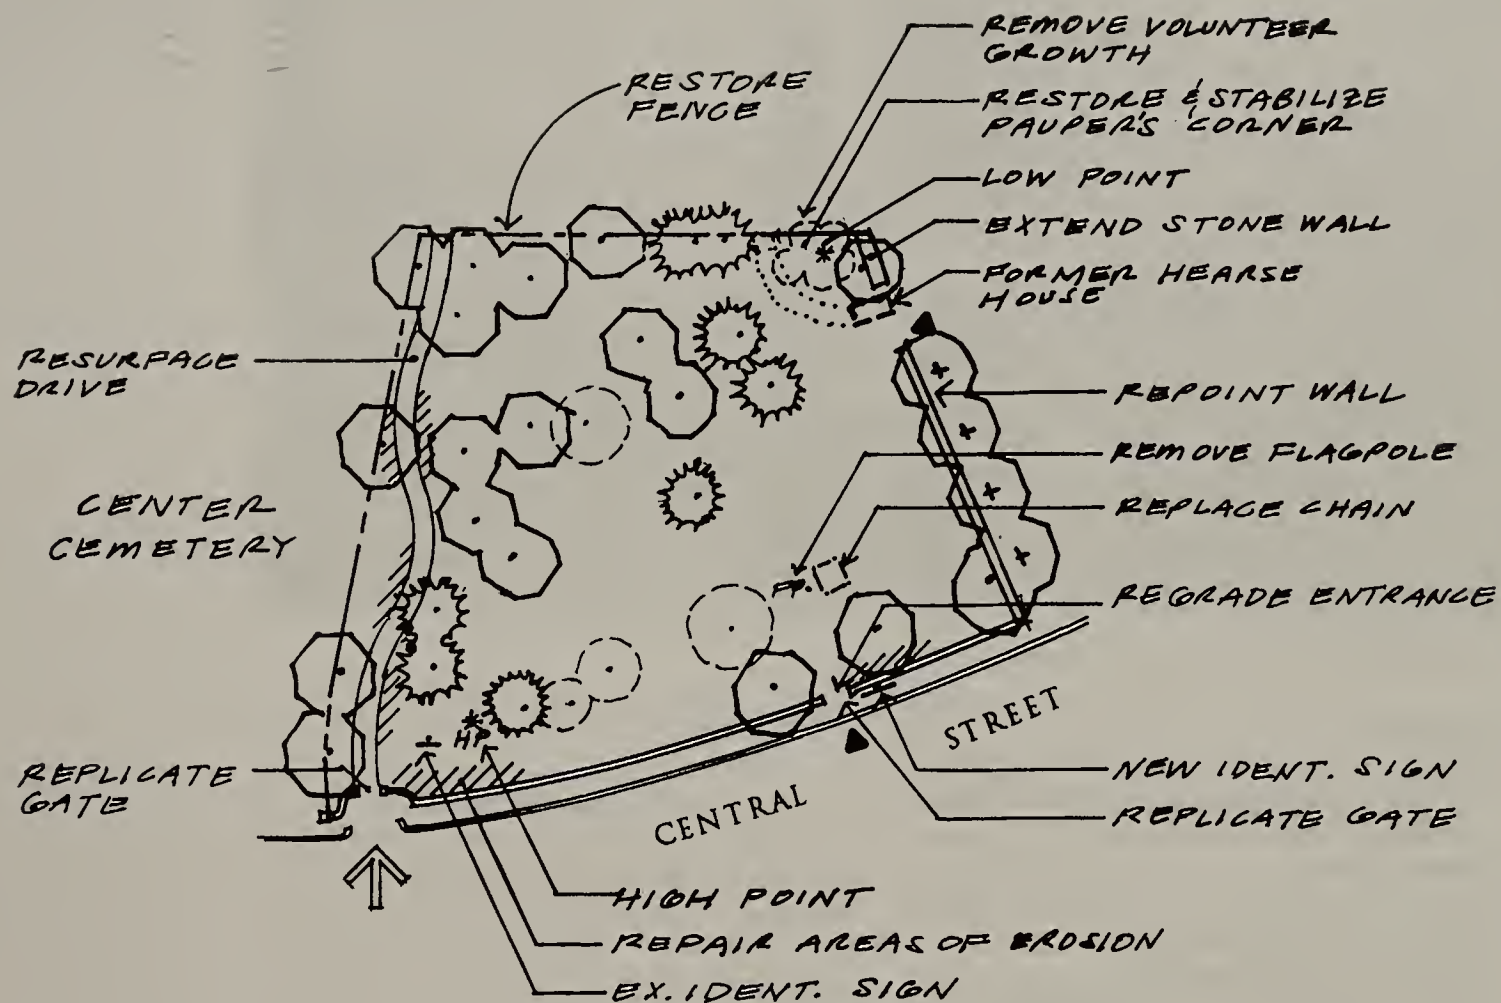 REMOVE VOLUNTEER
GROWTH
RESTORE
FENCE
RESTORE & STABILIZE
PAUPER'S CORNER
LOW POINT
EXTEND STONE WALL
FORMER HEARSE
HOUSE
RESURFACE
DRIVE
REPOINT WALL
REMOVE FLAGPOLE
CENTER
CEMETERY
REPLACE CHAIN
FP.
REGRADE ENTRANCE
STREET
HP
NEW IDENT. SIGN
REPLICATE
GATE
CENTRAL
REPLICATE GATE
HIGH POINT
REPAIR AREAS OF EROSION
EX. IDENT. SIGN